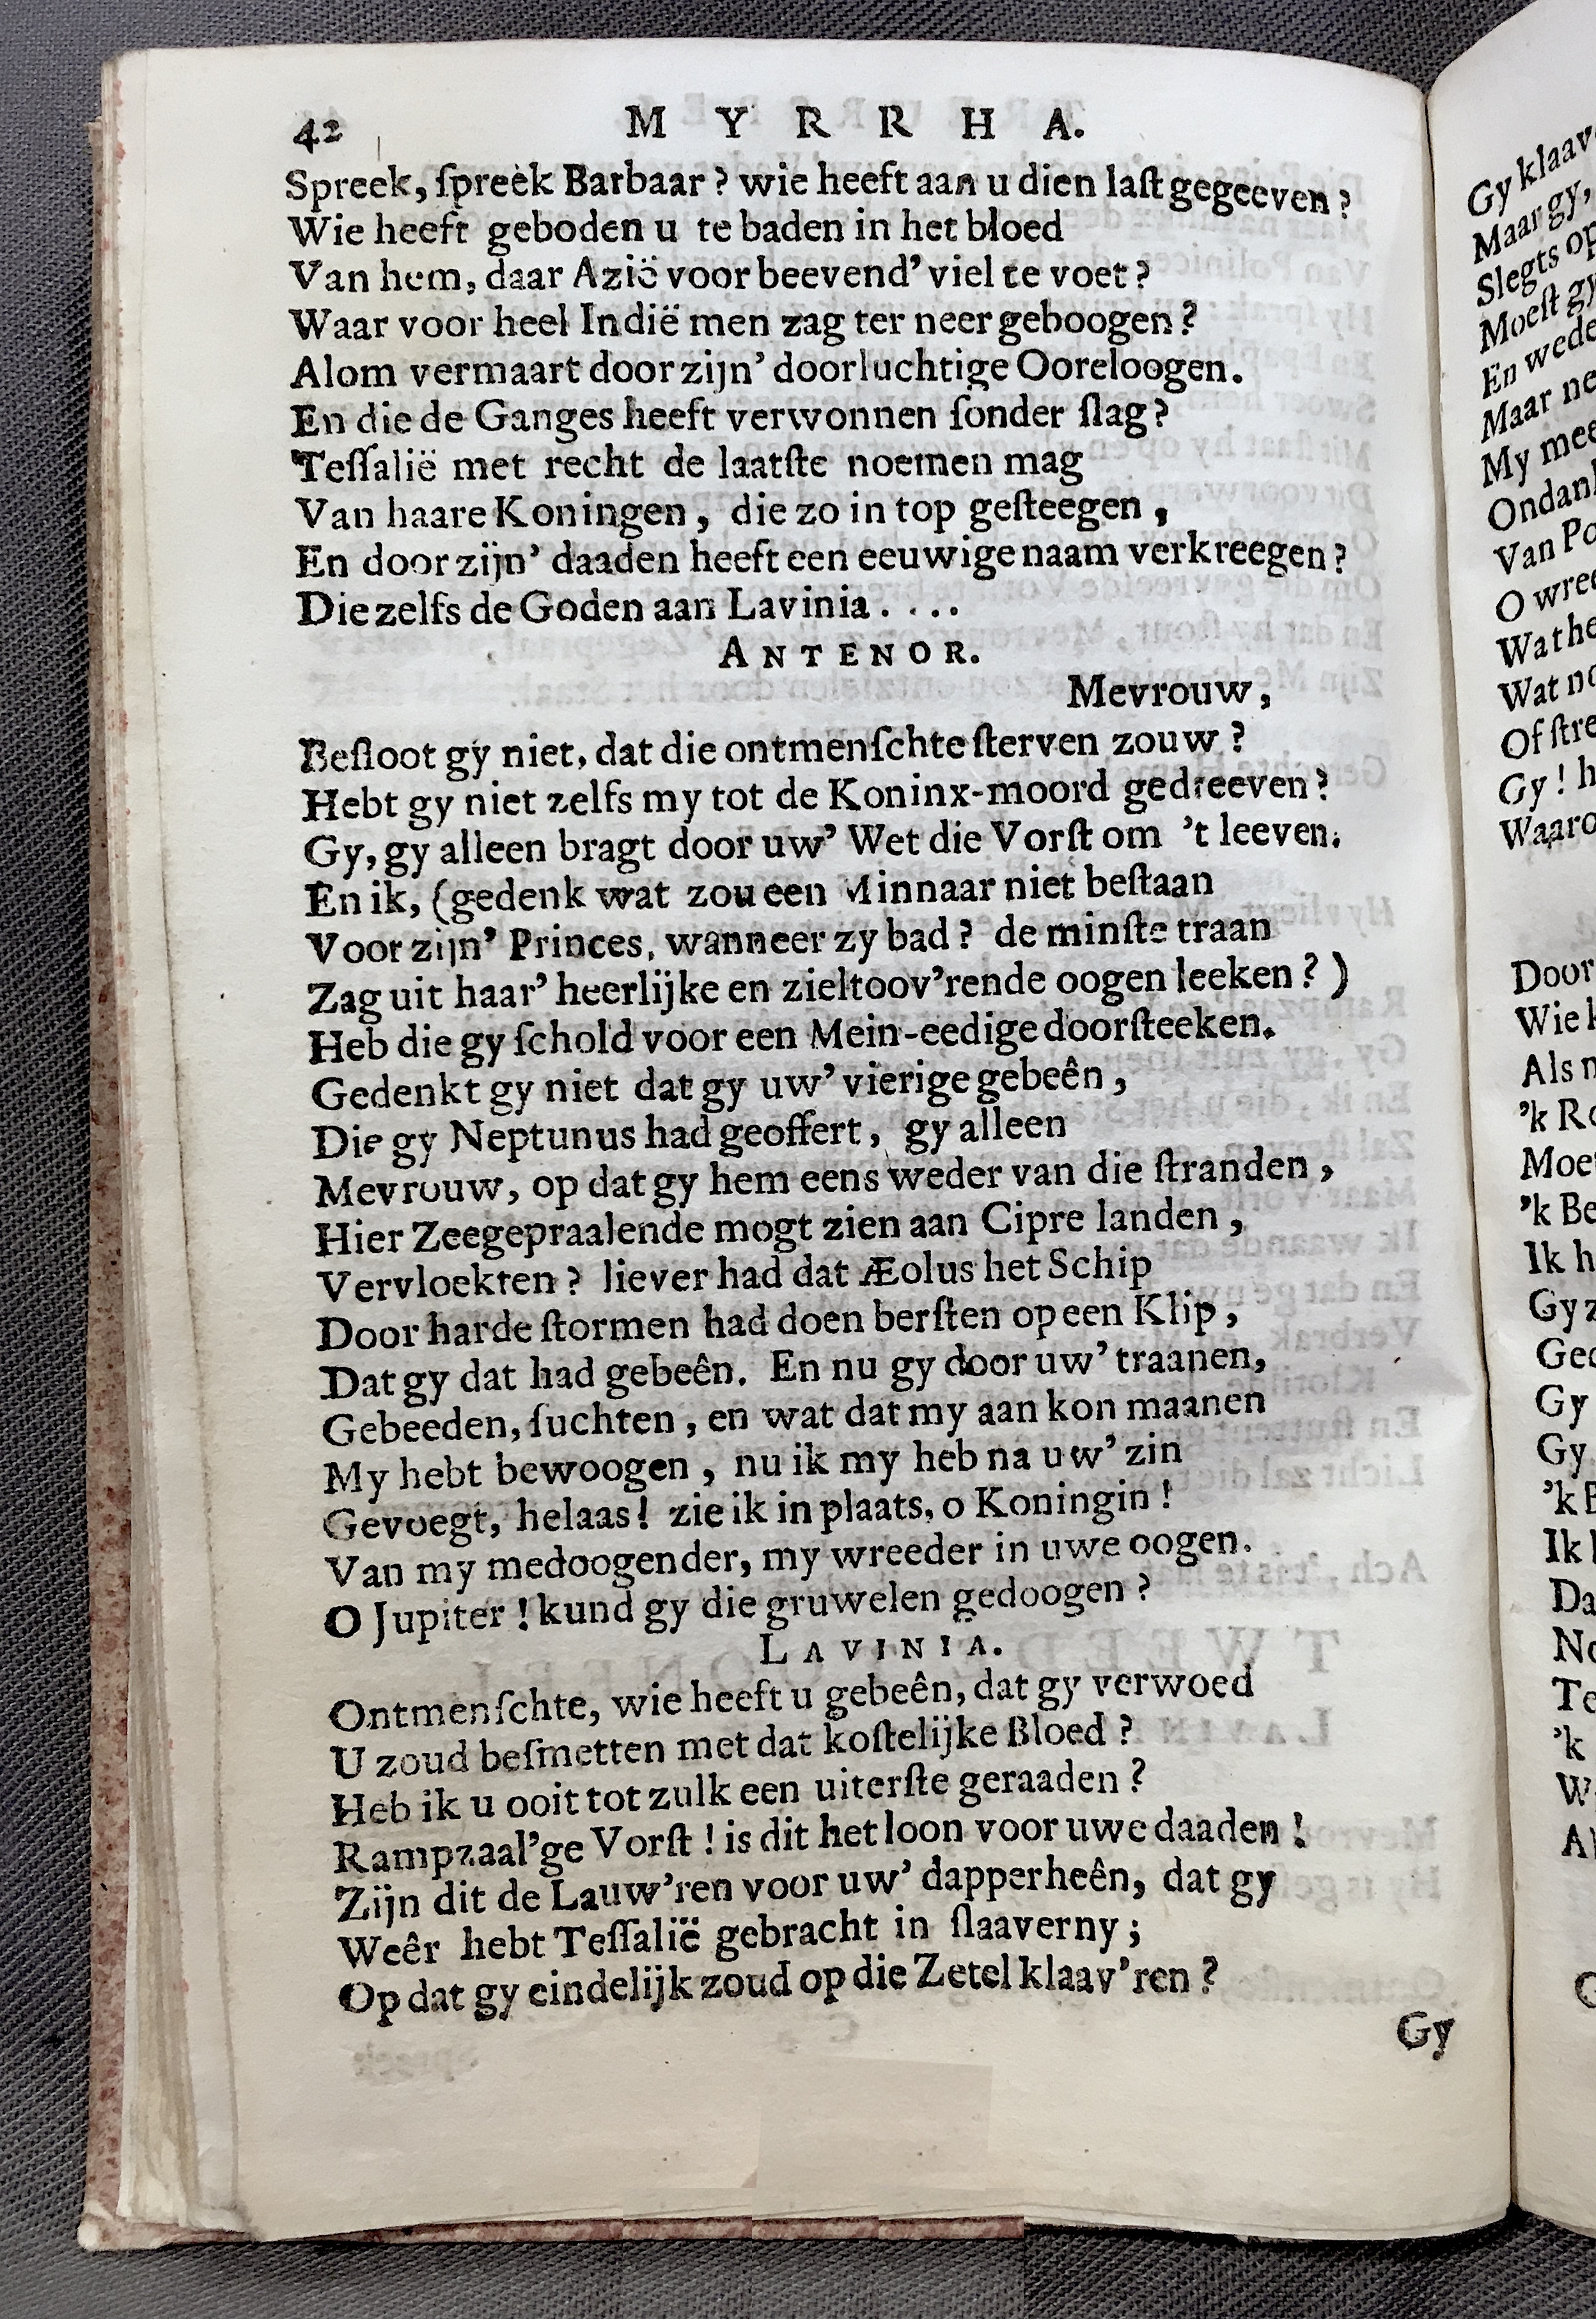 42 MYRRHA.
Spreek, ſpreek Barbaar? wie heeft aan u dien laſt gegeeven?
Wie heeft geboden u te baden in het bloed
Van hem, daar Azië voor beevend' viel te voet?
Waar voor heel Indië men zag ter neer geboogen?
Alom vermaart door zijn' doorluchtige Ooreloogen.
En die de Ganges heeft verwonnen ſonder ſlag?
Teſſalië met recht de laatſte noemen mag
Van haare Koningen, die zo in top geſteegen,
En door zijn' daaden heeft een eeuwige naam verkreegen?
Die zelfs de Goden aan Lavinia....
ANTENOR.
Mevrouw,
Beſloot gy niet, dat die ontmenſchte ſterven zouw?
Hebt gy niet zelfs my tot de Koninx-moord gedreeven?
Gy, gy alleen bragt door uw' Wet die Vorſt om 't leeven.
En ik, (gedenk wat zou een Minnaar niet beſtaan
Voor zijn' Princes, wanneer zy bad? de minſte traan
Zag uit haar' heerlijke en zieltoov'rende oogen leeken?)
Heb die gy ſchold voor een Mein-eedige doorſteeken.
Gedenkt gy niet dat gy uw' vierige gebeên,
Die gy Neptunus had geoffert, gy alleen
Mevrouw, op dat gy hem eens weder van die ſtranden,
Hier Zeegepraalende mogt zien aan Cipre landen,
Vervloekten? liever had dat Æolus het Schip
Door harde ſtormen had doen berſten op een Klip,
Dat gy dat had gebeên. En nu gy door uw' traanen,
Gebeeden, ſuchten, en wat dat my aan kon maanen
My hebt bewoogen, nu ik my heb na uw' zin
Gevoegt, helaas! zie ik in plaats, o Koningin!
Van my medoogender, my wreeder in uwe oogen.
O Jupiter! kund gy die gruwelen gedoogen?
LAVINIA.
Ontmenſchte, wie heeft u gebeên, dat gy verwoed
U zoud beſmetten met dat koſtelijke Bloed?
Heb ik u ooit tot zulk een uiterſte geraaden?
Rampzaal'ge Vorſt! is dit het loon voor uwe daaden!
Zijn dit de Lauw'ren voor uw' dapperheên, dat gy
Weêr hebt Teſſalië gebracht in ſlaaverny;
Op dat gy eindelijk zoud op die Zetel klaav'ren?
Gy
Gy klaav
Maar gy,
Slegts op
Moeſt gy
En wede
Maar ne
My mee
Ondank
Van Po
O wree
Wat he
Wat no
Of ſtre
Gy! h
Waaro
Door
Wie k
Als n
'k Ro
Moet
'k Be
Ik h
Gy z
Ged
Gy
Gy
'k B
Ik
Da
No
Te
'k
W
Al